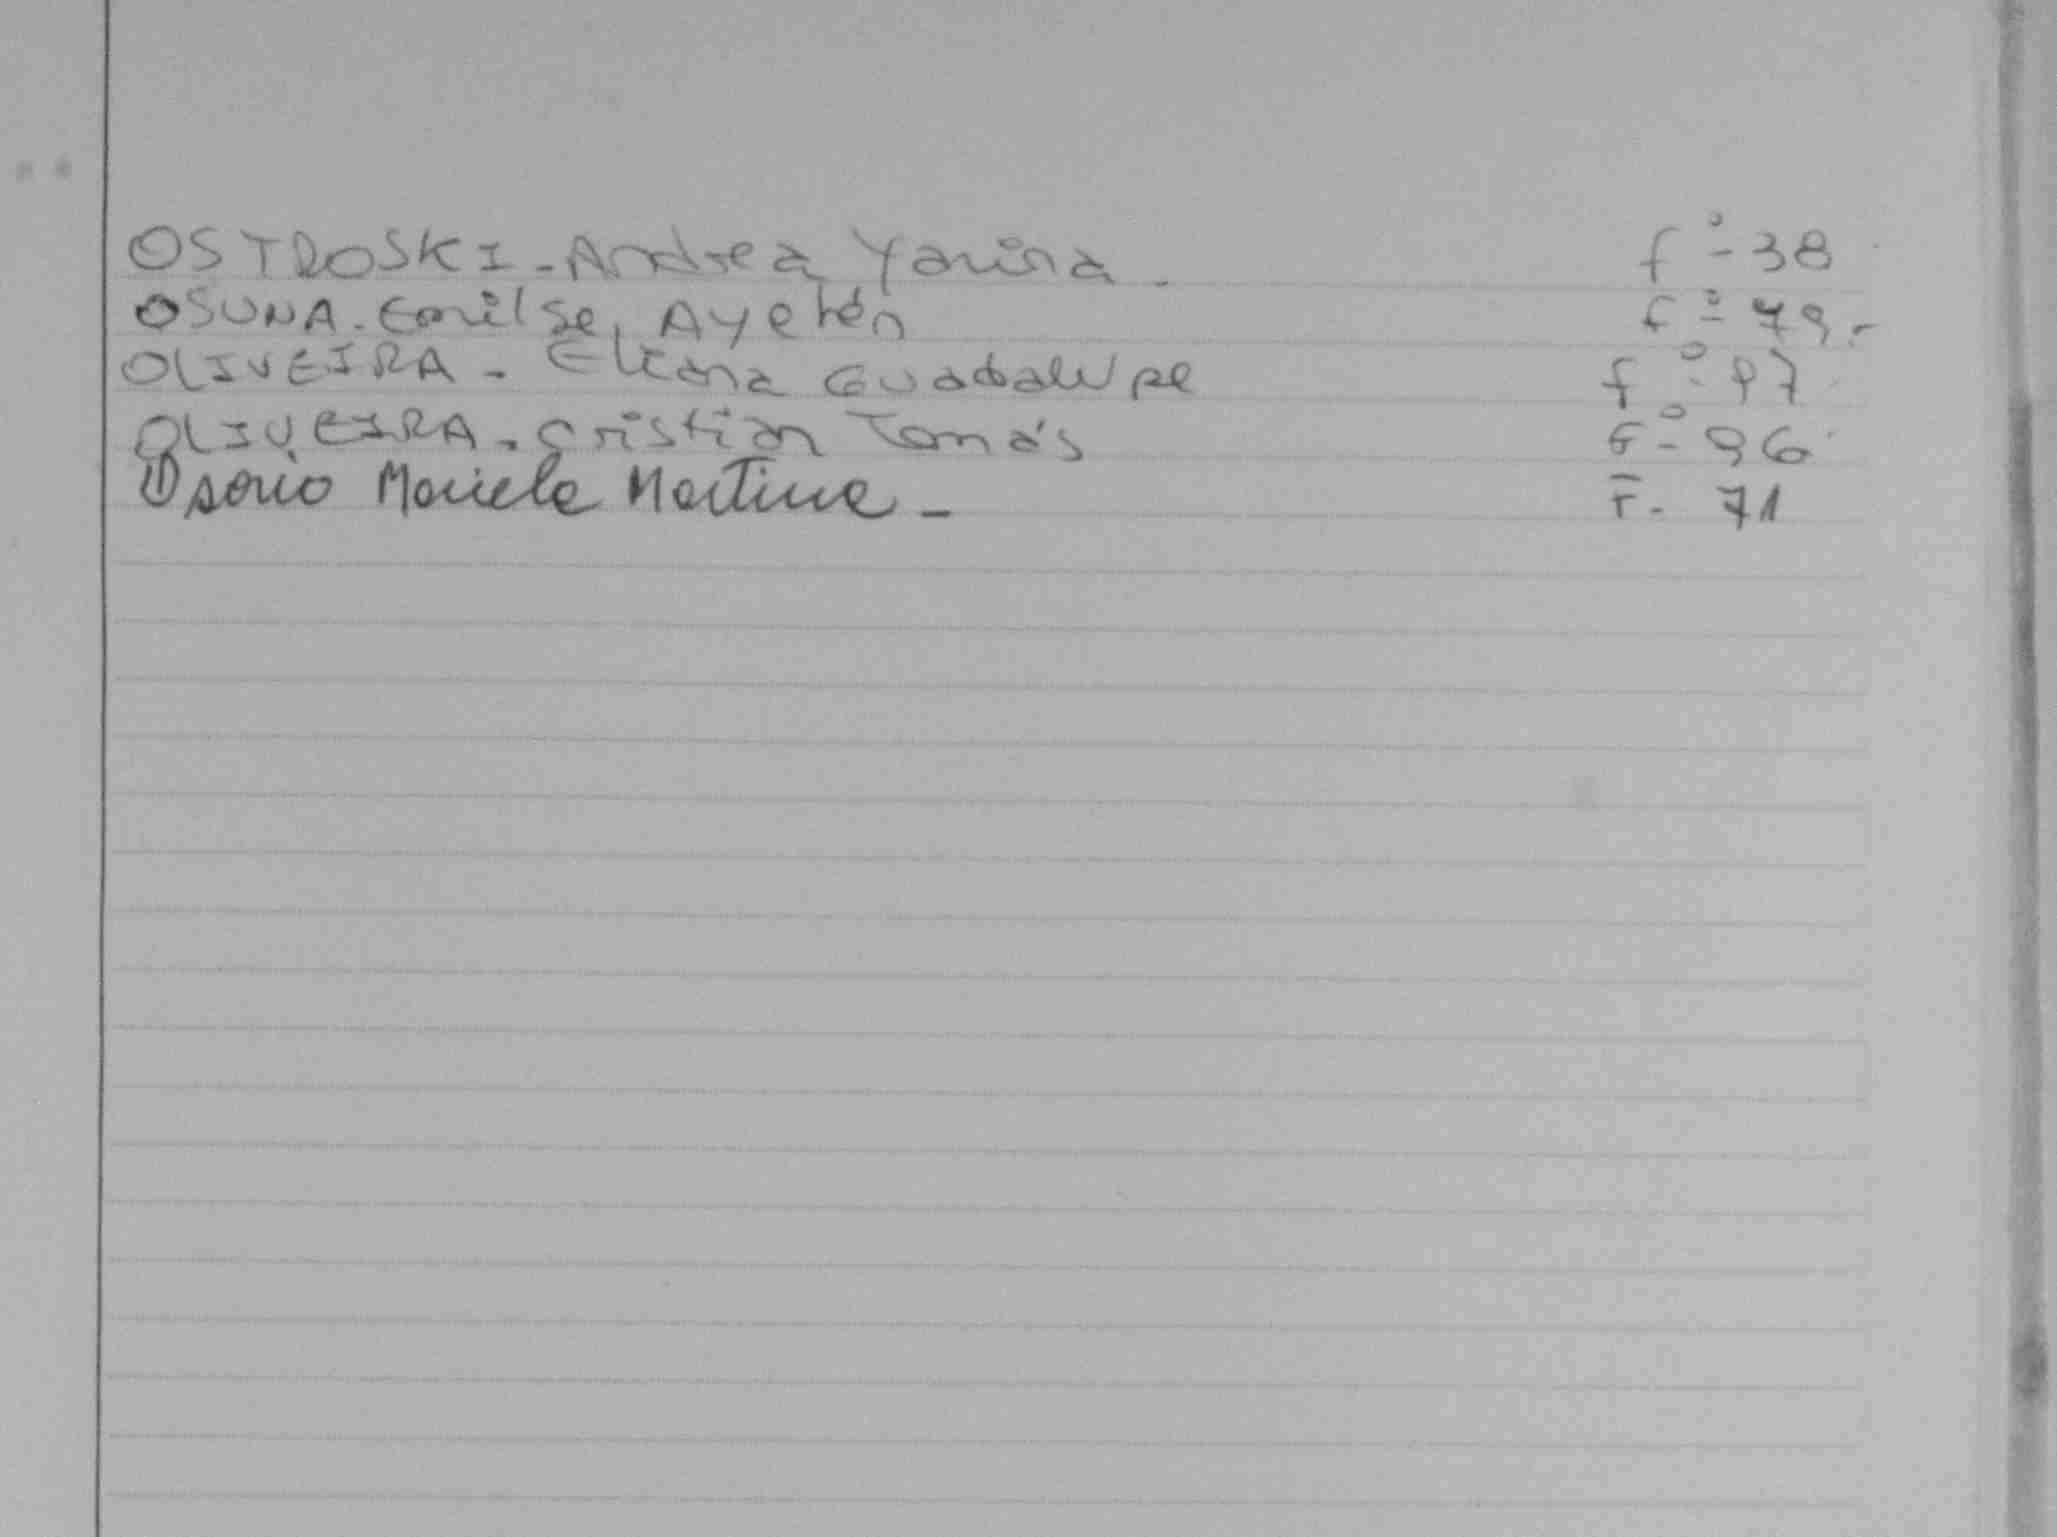 OSTROSKI - Andrea Yanina. fº - 38
OSUNA. Emilse, Ayelén fº - 79.-
OLIVEIRA - Eliana Guadalupe fº - 97
OLIVEIRA - Cristian Tomás Fº - 96
Osorio Mariela Martina - F. 71